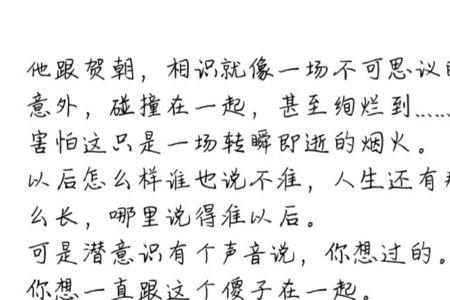 他跟贺朝，相识就像一场不可思议的
意外，碰撞在一起，甚至绚烂到……
害怕这只是一场转瞬即逝的烟火。
以后怎么样谁也说不准，人生还有那
么长，哪里说得准以后。
可是潜意识有个声音说，你想过的。
你想一直跟这个傻子在一起。